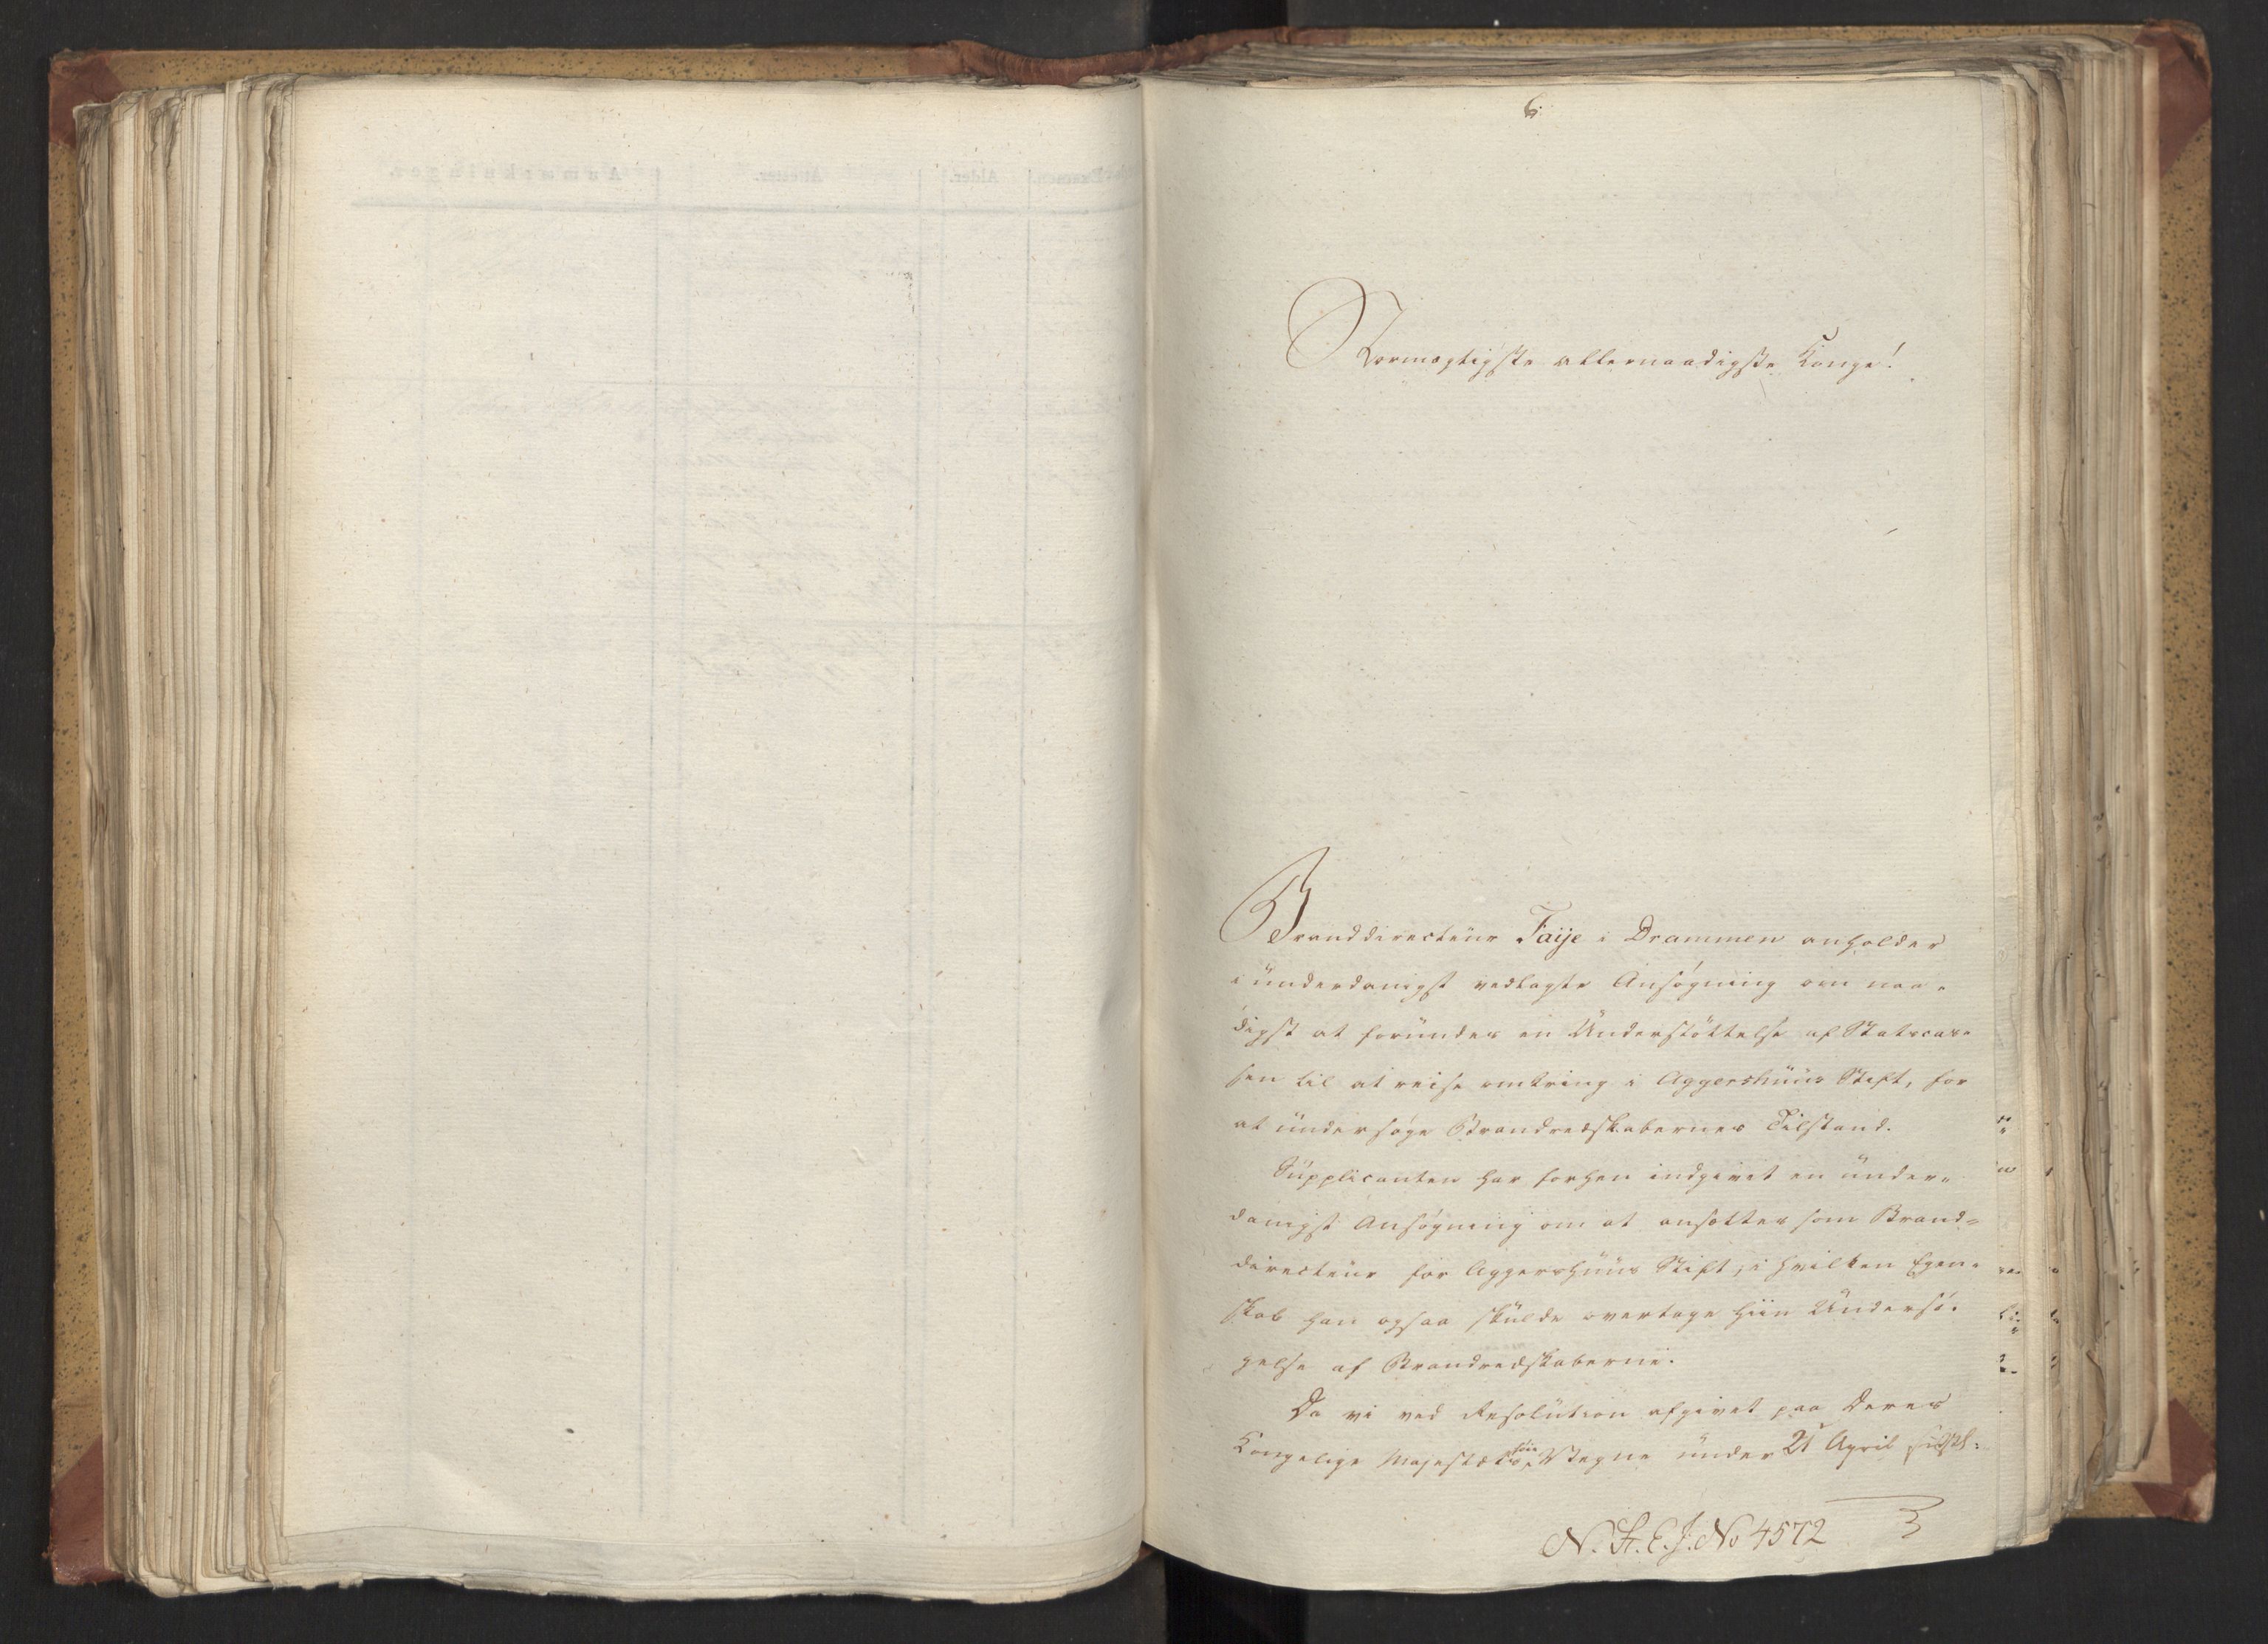 6.
Stormægtigste allernaadigste Konge!
Branddirecteur Faije i Drammen anholder
i underdanigst vedlagte Ansøgning om naa-
digst at forundes en Understøttelse af Statscas-
sen til at reise omkring i Aggershuus Stift, for
at undersøge Brandredskabernes Tilstand.
Supplicanten har forhen indgivet en under-
danigst Ansøgning om at ansættes som Brand-
directeur for Aggershuus Stift, i hvilken Egen-
skab han ogsaa skulde overtage hiin Undersø-
gelse af Brandredskaberne.
Da vi ved Resolution afgivet paa Deres
Kongelige Majestæts høie Vegne under 21 April
N. St. E. J. No 4572